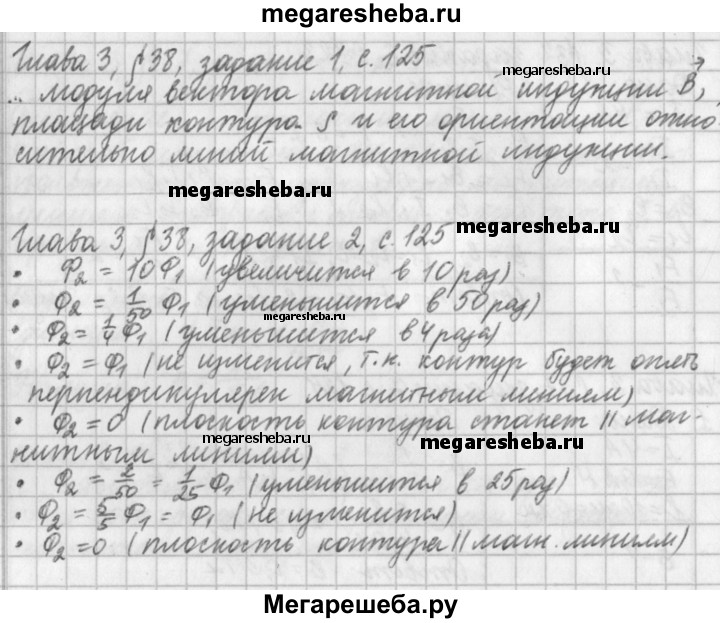 megaresheba.ru
Глава 3, § 38, задание 1, с. 125
megaresheba.ru
... модуля вектора магнитной индукции B⃗,
площади контура S и его ориентации отно-
сительно линий магнитной индукции.
megaresheba.ru
megaresheba.ru
Глава 3, § 38, задание 2, с. 125
• Ф₂ = 10Ф₁ (увеличится в 10 раз)
• Ф₂ = 1/50 Ф₁ (уменьшится в 50 раз)
megaresheba.ru
• Ф₂ = 1/4 Ф₁ (уменьшится в 4 раза)
• Ф₂ = Ф₁ (не изменится, т.к. контур будет опять
перпендикулярен магнитным линиям)
• Ф₂ = 0 (плоскость контура станет || маг-
нитным линиям)
megaresheba.ru
megaresheba.ru
• Ф₂ = 2/50 = 1/25 Ф₁ (уменьшится в 25 раз)
• Ф₂ = 5/5 Ф₁ = Ф₁ (не изменится)
• Ф₂ = 0 (плоскость контура || магн. линиям)
Мегарешеба.ру